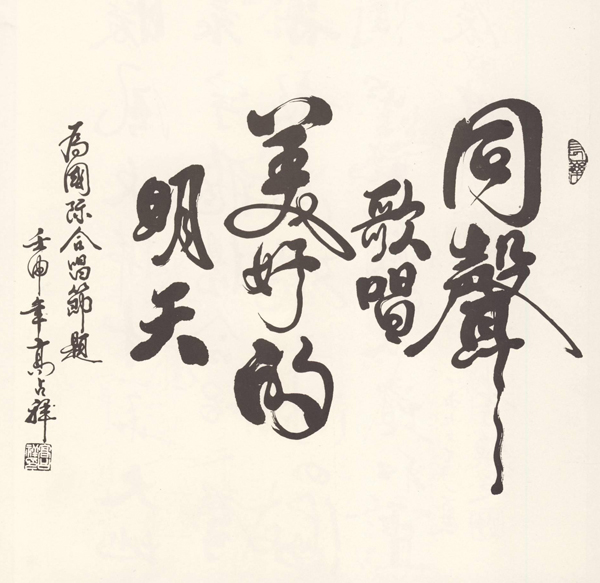 同聲
歌唱
美好的
明天
為國际合唱節題
壬申年高占祥